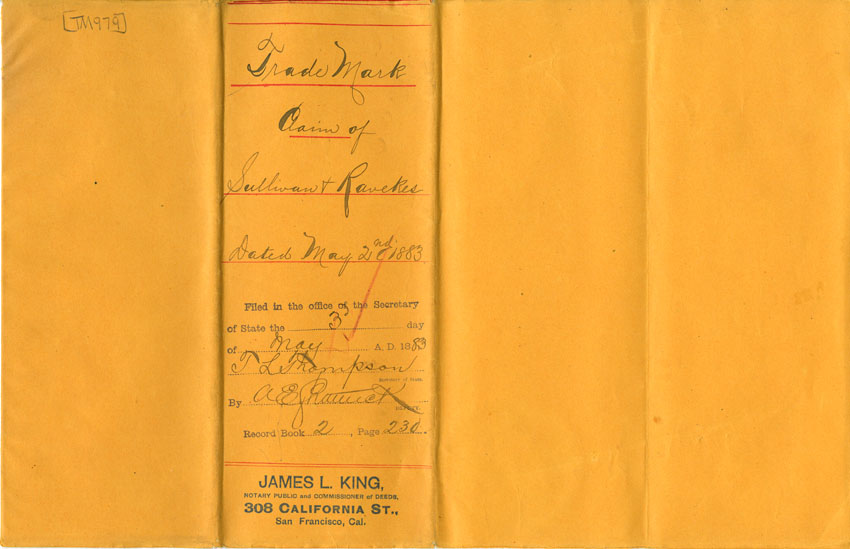 [TM979]
Trade Mark
Claim of
Sullivan & Ravekes
Dated May 2nd 1883
Filed in the office of the Secretary
of State the 3d day
of May A. D. 1883
T L Thompson
Secretary of State.
By A E
DEPUTY
Record Book 2, Page 230.
JAMES L. KING,
NOTARY PUBLIC and COMMISSIONER of DEEDS,
308 CALIFORNIA ST.,
San Francisco, Cal.